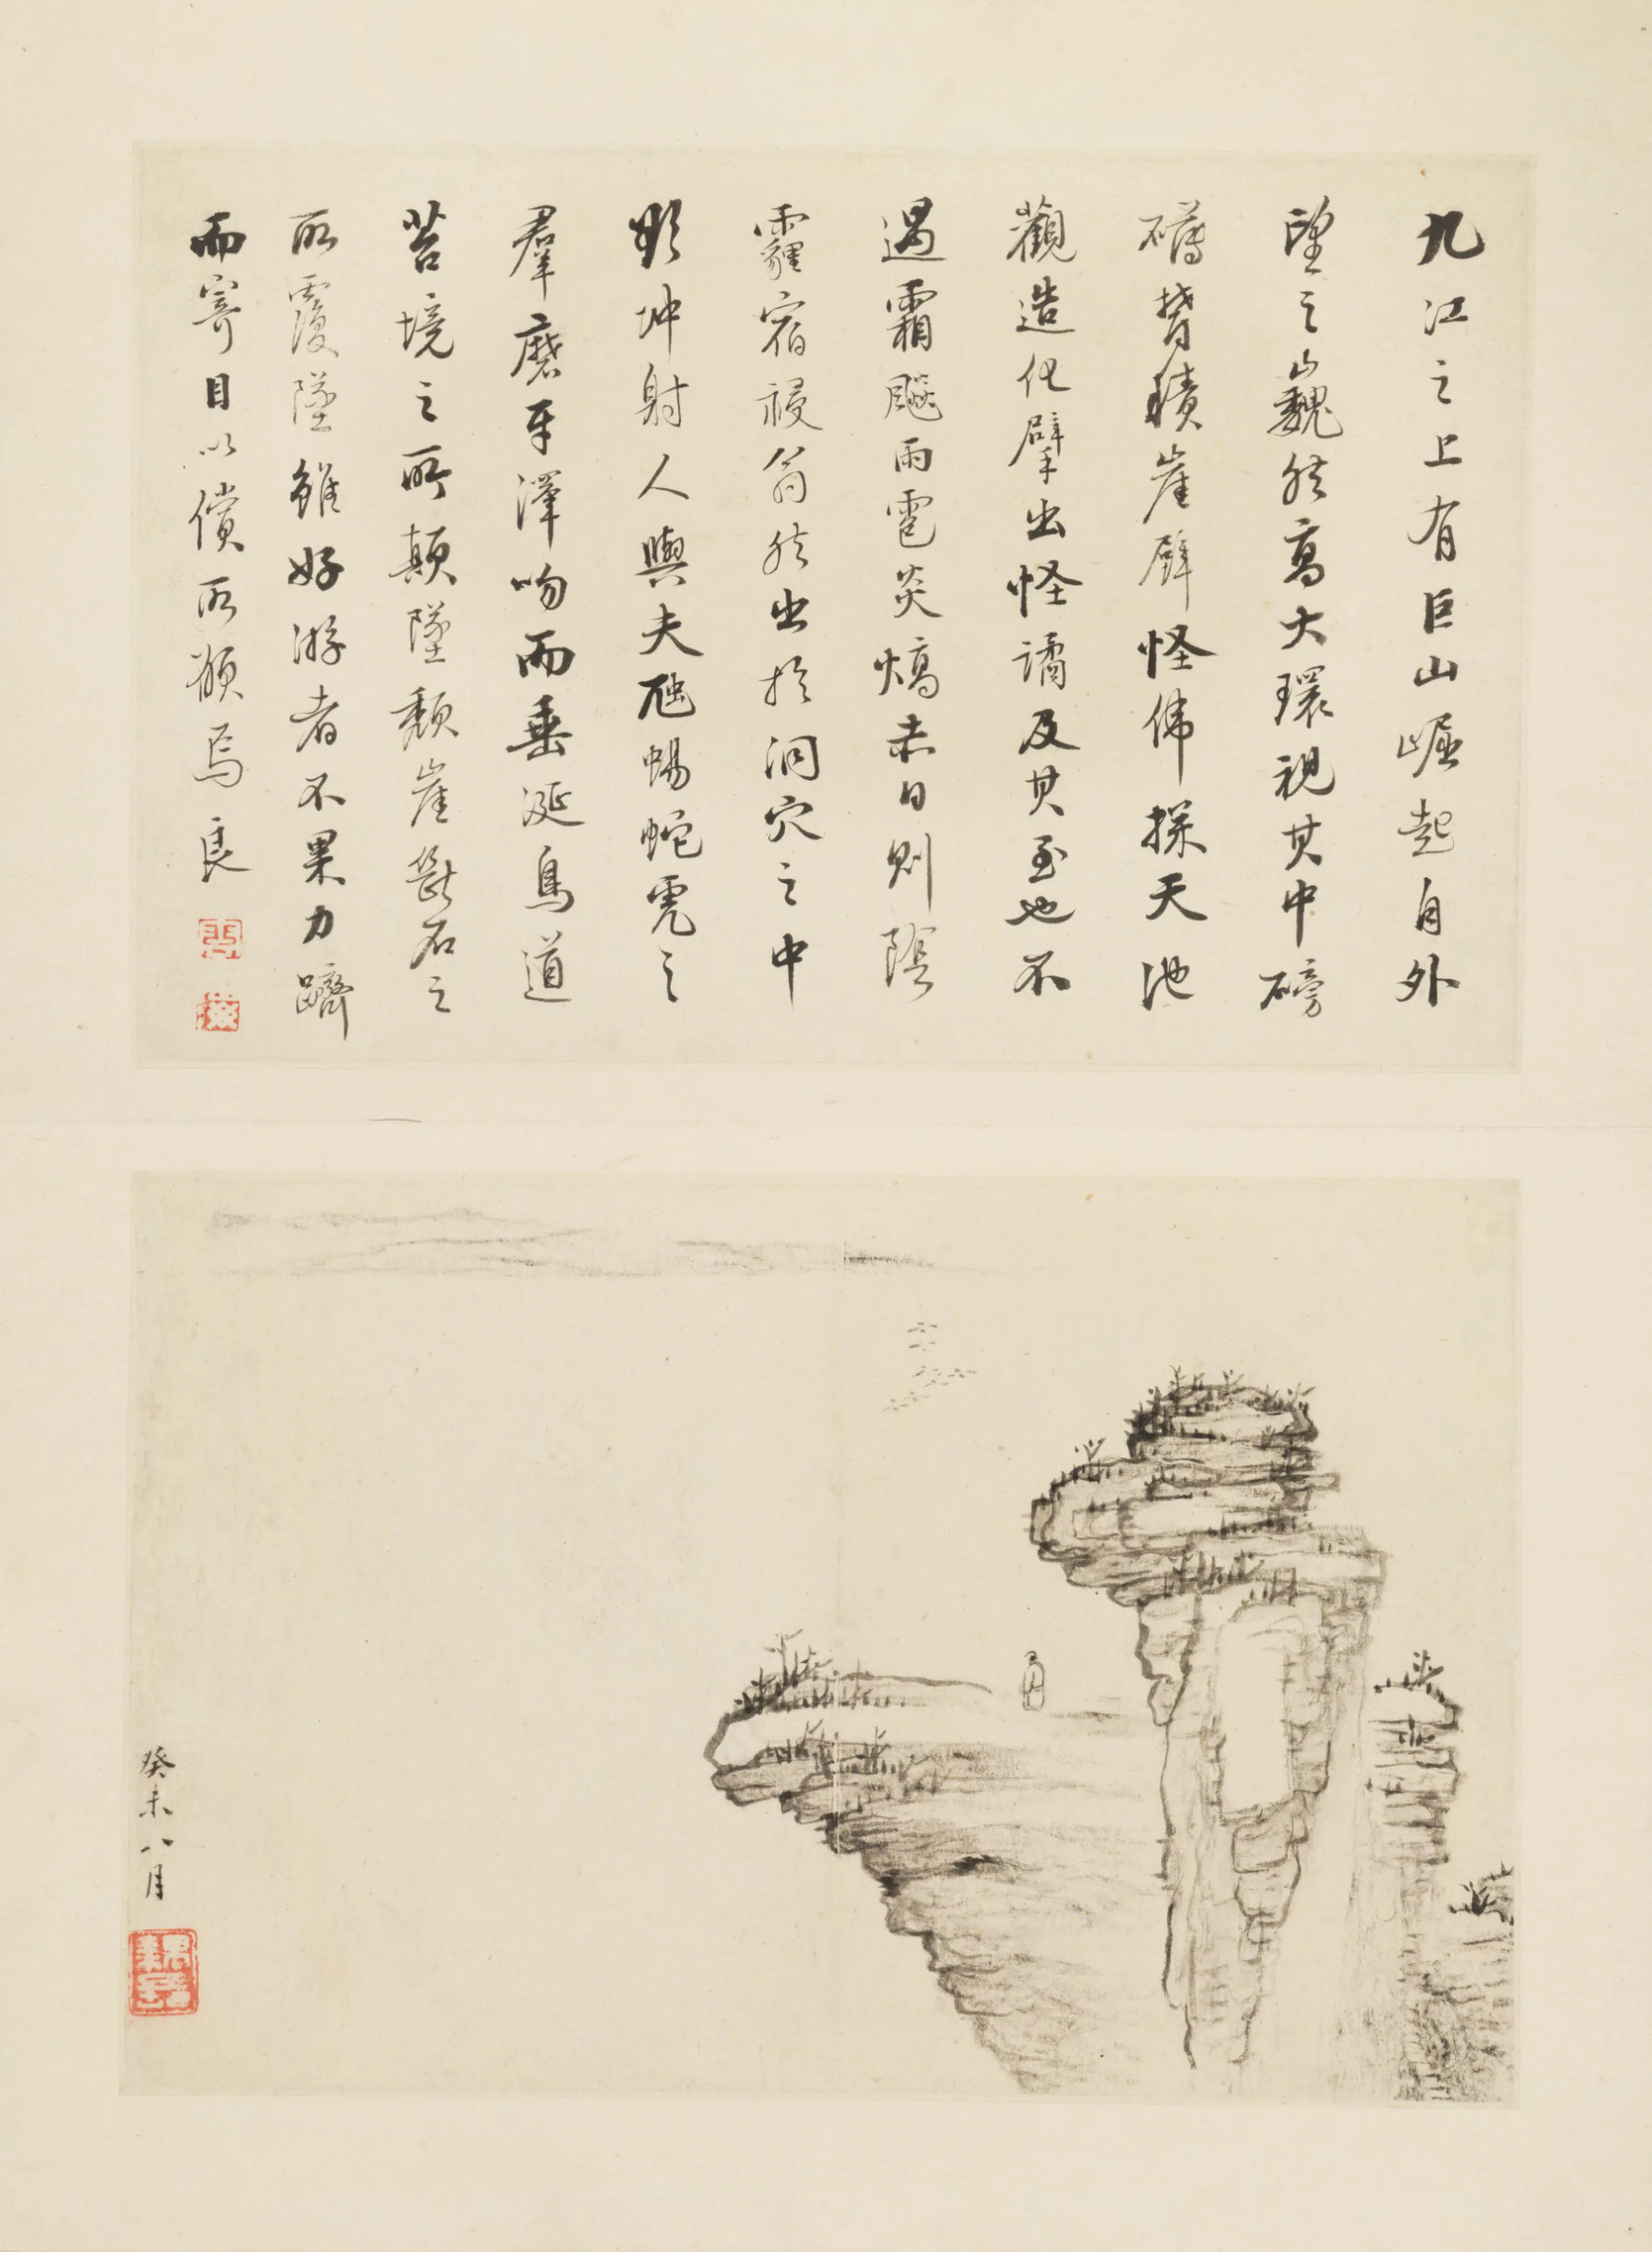 九江之上有巨山崛起自外
望之巍然高大環視其中磅
礴贊積崖壁怪偉探天池
觀造化擘出怪譎及其至也不
過霜飈雨雹炎熇赤日則陰
霾宿祲翁然出於洞穴之中
歘坤射人與夫虺蜴蛇虎之
羣磨牙澤吻而垂涎鳥道
苔境之所顛墜頹崖斷石之
所覆墜雖好游者不果力躋
而寄目以償所願焉良
癸未八月